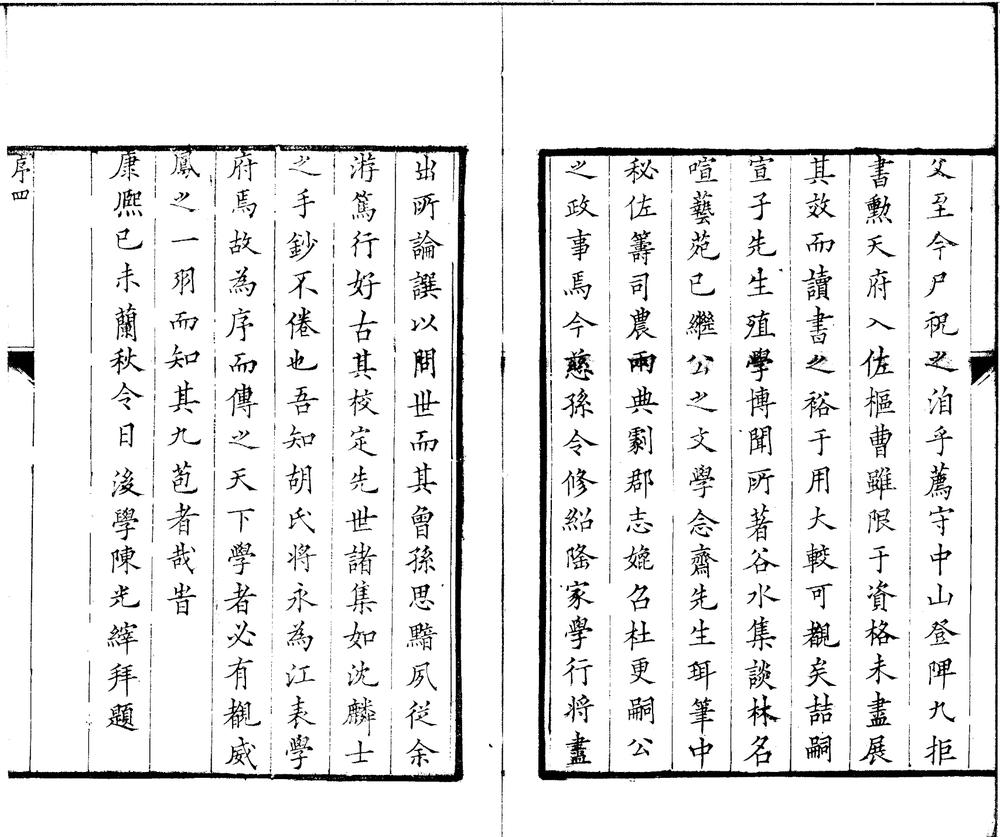 父至今尸祝之洎乎薦守中山登陴九拒
書勲天府入佐樞曹雖限于資格未盡展
其效而讀書之裕于用大較可覩矣喆嗣
宣子先生殖學博聞所著谷水集談林名
喧藝苑已繼公之文學念齋先生珥筆中
秘佐籌司農兩典劇郡志媲召杜更嗣公
之政事焉今慈孫令修紹隆家學行將盡
出所論譔以問世而其曾孫思黯夙從余
游篤行好古其校定先世諸集如沈麟士
之手鈔不倦也吾知胡氏將永為江表學
府焉故為序而傳之天下學者必有覩威
鳳之一羽而知其九苞者哉旹
康熈己未蘭秋令日後學陳光縡拜題
序四